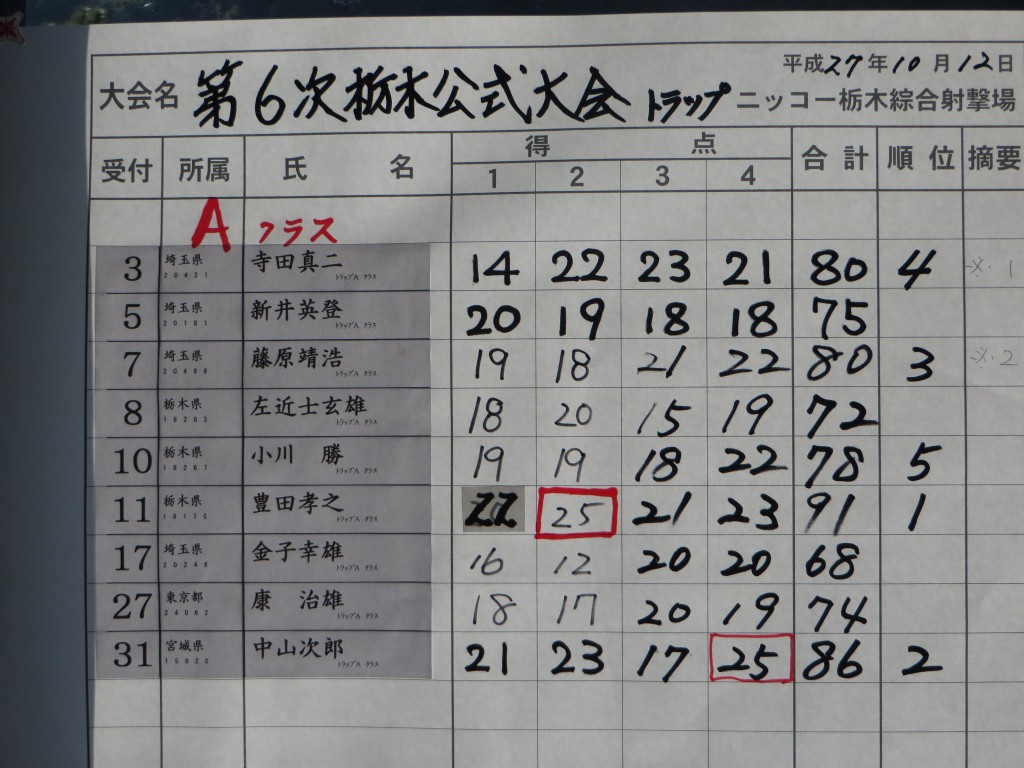 平成27年10月12日
大会名 第6次栃木公式大会 トラップ ニッコー栃木綜合射撃場
受付 所属 氏 名 得 点 合計 順位 摘要
1 2 3 4
A クラス
3 埼玉県 寺田真二 14 22 23 21 80 4 ※1
20431 トラップA クラス
5 埼玉県 新井英登 20 19 18 18 75
20181 トラップA クラス
7 埼玉県 藤原靖浩 19 18 21 22 80 3 ※2
20486 トラップA クラス
8 栃木県 左近士玄雄 18 20 15 19 72
トラップA クラス
10 栃木県 小川 勝 19 19 18 22 78 5
トラップA クラス
11 栃木県 豊田孝之 22 25 21 23 91 1
18130 トラップA クラス
17 埼玉県 金子幸雄 16 12 20 20 68
20246 トラップA クラス
27 東京都 康 治雄 18 17 20 19 74
24062 トラップA クラス
31 宮城県 中山次郎 21 23 17 25 86 2
15020 トラップA クラス